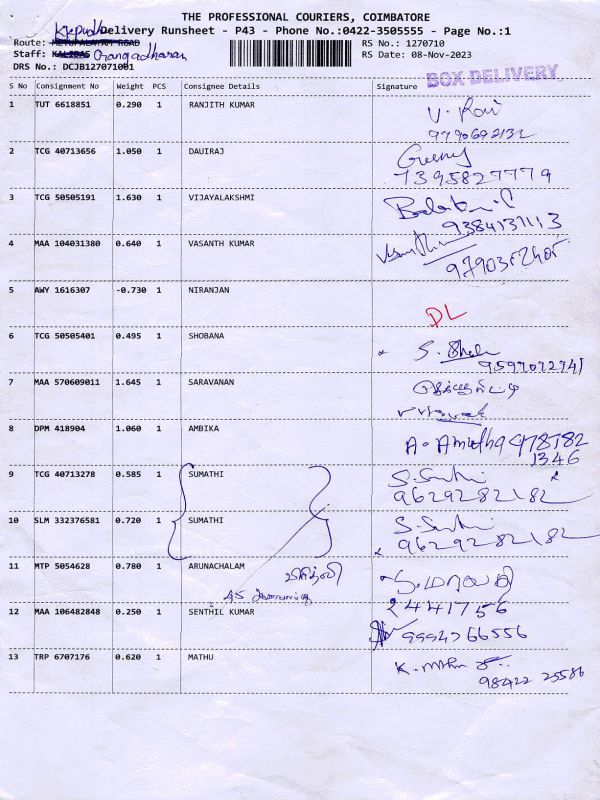 THE PROFESSIONAL COURIERS, COIMBATORE
Delivery Runsheet - P43 - Phone No.:0422-3505555 - Page No.:1
Route: METUPALAYAM ROAD
RS No.: 1270710
Staff: KALIDAS Gangadharan
RS Date: 08-Nov-2023
DRS No.: DCJB127071001
BOX DELIVERY
S No Consignment No Weight PCS Consignee Details Signature
1 TUT 6618851 0.290 1 RANJITH KUMAR V. Ravi
9790692132
2 TCG 40713656 1.050 1 DAUIRAJ
7395827779
3 TCG 50505191 1.630 1 VIJAYALAKSHMI
9384131113
4 MAA 104031380 0.640 1 VASANTH KUMAR
5 AWY 1616307 -0.730 1 NIRANJAN
DL
6 TCG 50505401 0.495 1 SHOBANA
7 MAA 570609011 1.645 1 SARAVANAN
8 DPM 418904 1.060 1 AMBIKA
A. Amutha 978782
1346
9 TCG 40713278 0.585 1 SUMATHI
9629282182
10 SLM 332376581 0.720 1 SUMATHI
9629282182
11 MTP 5054628 0.780 1 ARUNACHALAM
2441756
12 MAA 106482848 0.250 1 SENTHIL KUMAR
9994266556
13 TRP 6707176 0.620 1 MATHU
98422 25586